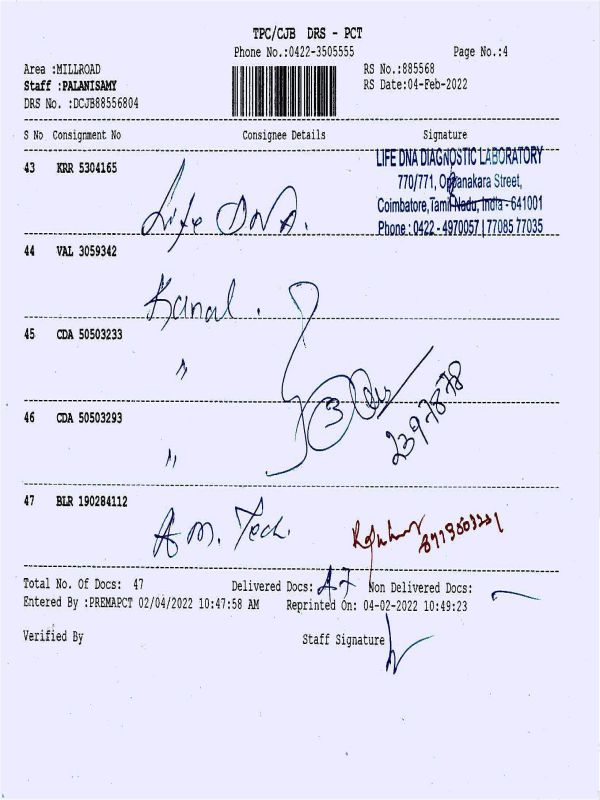 TPC/CJB DRS - PCT
Phone No.:0422-3505555 Page No.:4
Area :MILLROAD RS No.:885568
Staff :PALANISAMY RS Date:04-Feb-2022
DRS No. :DCJB88556804
S No Consignment No Consignee Details Signature
43 KRR 5304165
LIFE DNA DIAGNOSTIC LABORATORY
770/771, Oppanakara Street,
Coimbatore,Tamil Nadu, India - 641001
Phone : 0422 - 4970057 | 77085 77035
Life DNA.
44 VAL 3059342
Kanal.
45 CDA 50503233
"
3
2397878
46 CDA 50503293
"
47 BLR 190284112
A M. Tech.
Total No. Of Docs: 47 Delivered Docs: 47 Non Delivered Docs: —
Entered By :PREMAPCT 02/04/2022 10:47:58 AM Reprinted On: 04-02-2022 10:49:23
Verified By Staff Signature